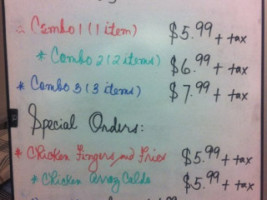 * Combo 1 (1 item) $5.99 + tax
* Combo 2 (2 items) $6.99 + tax
* Combo 3 (3 items) $7.99 + tax
Special Orders:
* Chicken Fingers and Fries $5.99 + tax
* Chicken $5.99 + tax